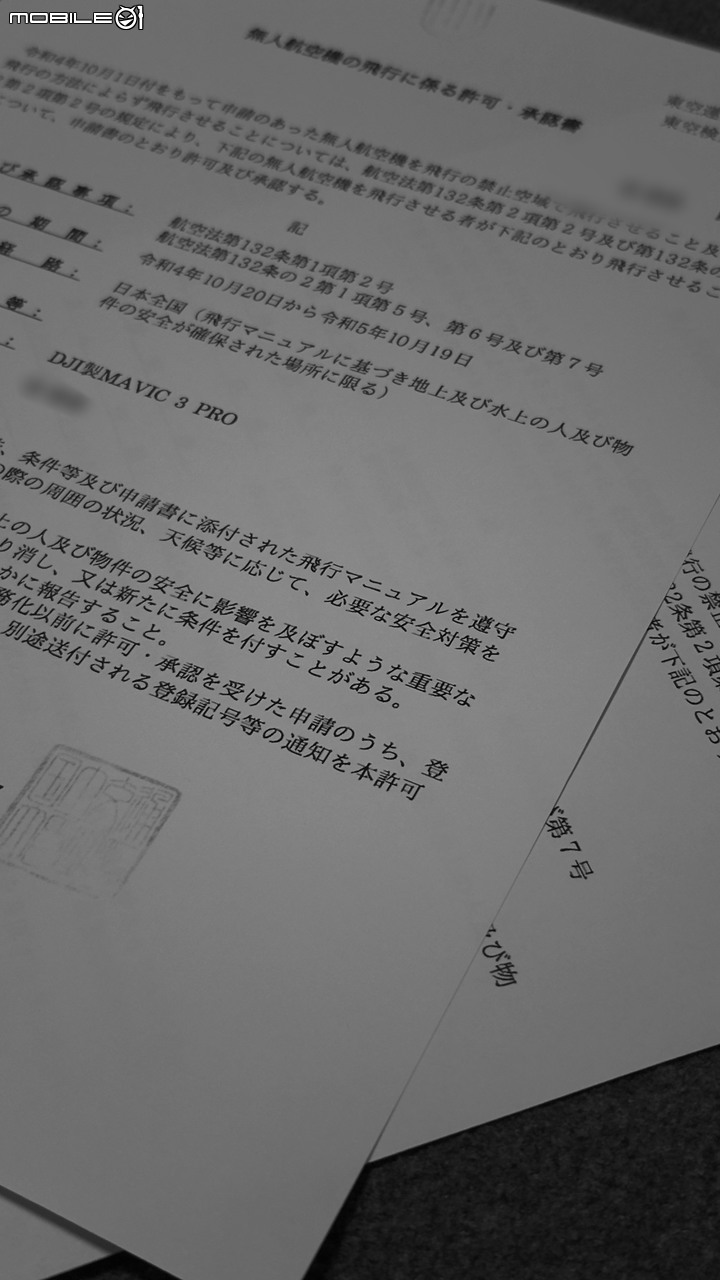 MOBILE01
無人航空機の飛行に係る許可・承認書
東空運
東空検
令和4年10月1日付をもって申請のあった無人航空機を飛行の禁止空域で飛行させること及
飛行の方法によらず飛行させることについては、航空法第132条第2項第2号及び第132条の
第2項第2号の規定により、下記の無人航空機を飛行させる者が下記のとおり飛行させるこ
について、申請書のとおり許可及び承認する。
記
び承認事項:
航空法第132条第1項第2号
航空法第132条の2第1項第5号、第6号及び第7号
の期間:
令和4年10月20日から令和5年10月19日
経路:
日本全国(飛行マニュアルに基づき地上及び水上の人及び物
件の安全が確保された場所に限る)
等:
DJI製MAVIC 3 PRO
、条件等及び申請書に添付された飛行マニュアルを遵守
の際の周囲の状況、天候等に応じて、必要な安全対策を
上の人及び物件の安全に影響を及ぼすような重要な
り消し、又は新たに条件を付すことがある。
かに報告すること。
務化以前に許可・承認を受けた申請のうち、登
別途送付される登録記号等の通知を本許可
行の禁止
32条第2項
が下記のとお
第7号
び物